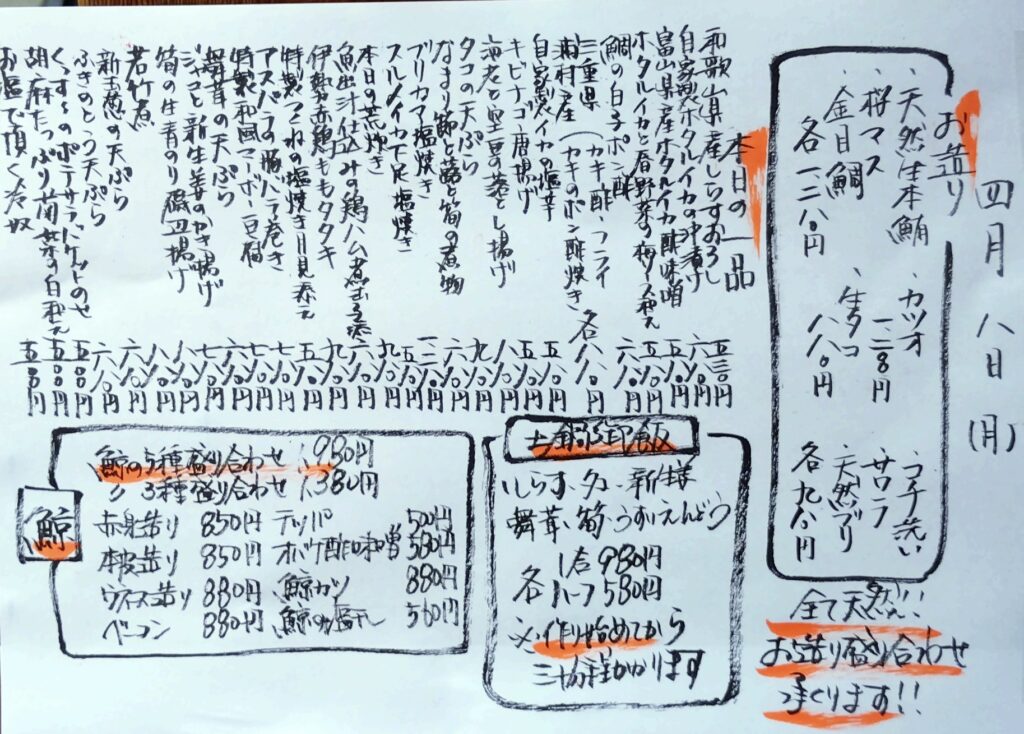 四月八日(月)
お造り
・天然生本鮪
・桜マス
・金目鯛
各一二八〇円
・カツオ
一二八〇円
・生タコ
八八〇円
・サワラ
・天然ブリ
各九八〇円
全て天然!!
お造り盛り合わせ
承ります!!
本日の一品
和歌山県産しらすおろし 五三〇円
自家製ホタルイカの沖漬け 六八〇円
富山県産ホタルイカ酢味噌 五八〇円
ホタルイカと春野菜の梅ソース和え
鯛の白子ポン酢
三重県浦村産(カキ酢・フライ
(カキのポン酢焼き 各八八〇円
自家製イカの塩辛 五八〇円
キビナゴ唐揚げ
海老と空豆の落とし揚げ
タコの天ぷら
なまり節と蕗と筍の煮物
ブリカマ塩焼き
スルメイカ下足塩焼き
本日の荒炊き
魚出汁仕込みの鶏ハム煮玉子添え
伊勢赤鶏ももタタキ
特製つくねの塩焼き月見添え
アスパラの豚バラ巻き
特製和風マーボー豆腐
舞茸の天ぷら
ジャコと新生姜のかき揚げ
筍の生青のり磯辺揚げ
若竹煮
新玉葱の天ぷら
ふきのとう天ぷら
くぅ~のポテサラバケットのせ
胡麻たっぷり菊菜の白和え 五〇〇円
お塩で頂く冷奴 五〇〇円
土鍋御飯
・しらす・タコ・新生姜
舞茸・筍・うすいえんどう
各 1合 980円
ハーフ 580円
※作り始めてから
三十分程かかります
鯨
鯨の5種盛り合わせ 1,980円
〃 3種盛り合わせ 1,380円
赤身造り 850円
本皮造り 850円
ウネス造り 880円
ベーコン 880円
テッパ 500円
オバケ酢味噌 580円
鯨カツ 880円
鯨の塩干し 560円